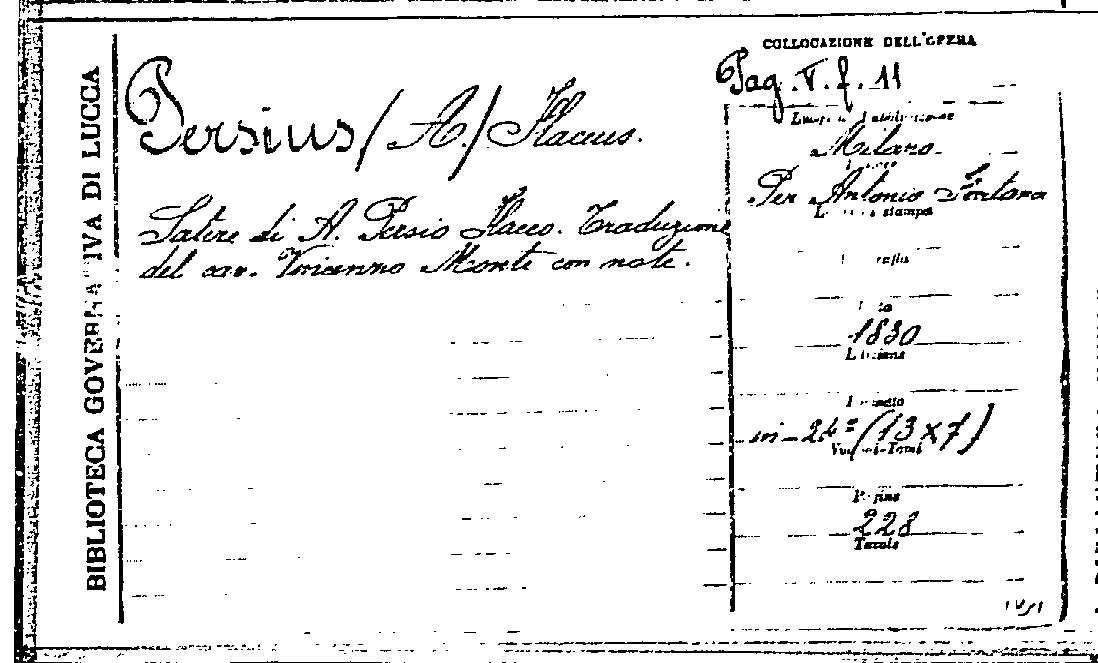 BIBLIOTECA GOVERNATIVA DI LUCCA
Persius /A./ Flaccus.
Satire di A. Persio Flacco. Traduzione
del cav. Vincenzo Monti con note.
COLLOCAZIONE DELL'OPERA
Pag. V. f. 11
Milano
Per Antonio Fontana
stampa
1830
Edizione
Formato
in-24º (13x7)
Volumi-Tomi
Pagine
228
Tavole